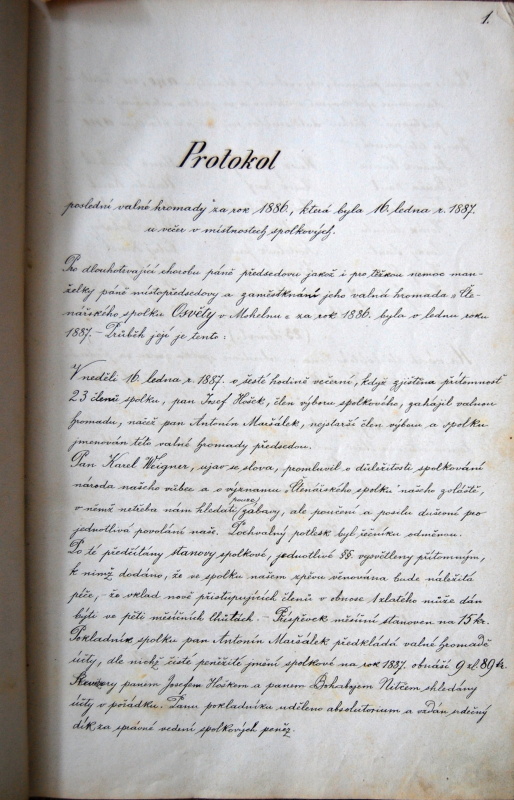 1.
Protokol
poslední valné hromady za rok 1886, která byla 16. ledna r. 1887.
u večer v místnostech spolkových.
Pro dlouhotrvající chorobu páně předsedovu jakož i pro těžkou nemoc man-
želky páně místopředsedovy a zaměstknání jeho valná hromada "Čte-
nářského spolku Osvěty v Mohelnu" za rok 1886. byla v lednu roku
1887. – Průběh její je tento:
V neděli 16. ledna r. 1887. o šesté hodině večerní, když zjištěna přítomnost
23 členů spolku, pan Josef Hošek, člen výboru spolkového, zahájil valnou
hromadu, načež pan Antonín Maršálek, nejstarší člen výboru a spolku
jmenován této valné hromady předsedou.
Pan Karel Weigner, ujav se slova, promluvil o důležitosti spolkování
národa našeho vůbec a o významu "Čtenářského spolku" našeho zvláště,
v němž netřeba nám hledati pouze zábavy, ale poučení a posilu duševní pro
jednotlivá povolání naše. Pochvalný potlesk byl řečníku odměnou.
Po té předčítány stanovy spolkové, jednotlivé §§. vysvětleny přítomným,
k nimž dodáno, že ve spolku našem zpěvu věnována bude náležitá
péče, že vklad nově přistupujících členů v obnose 1 zlatého může dán
býti ve pěti měsíčních lhůtách. – Příspěvek měsíční stanoven na 15 kr.
Pokladník spolku pan Antonín Maršálek předkládá valné hromadě
účty, dle nichž čisté peněžité jmění spolkové na rok 1887. obnáší 9 zl. 89 kr.
panem Josefem Hoškem a panem shledány
účty v pořádku. Panu pokladníku uděleno absolutorium a vzdán vděčný
dík za správné vedení spolkových peněz.